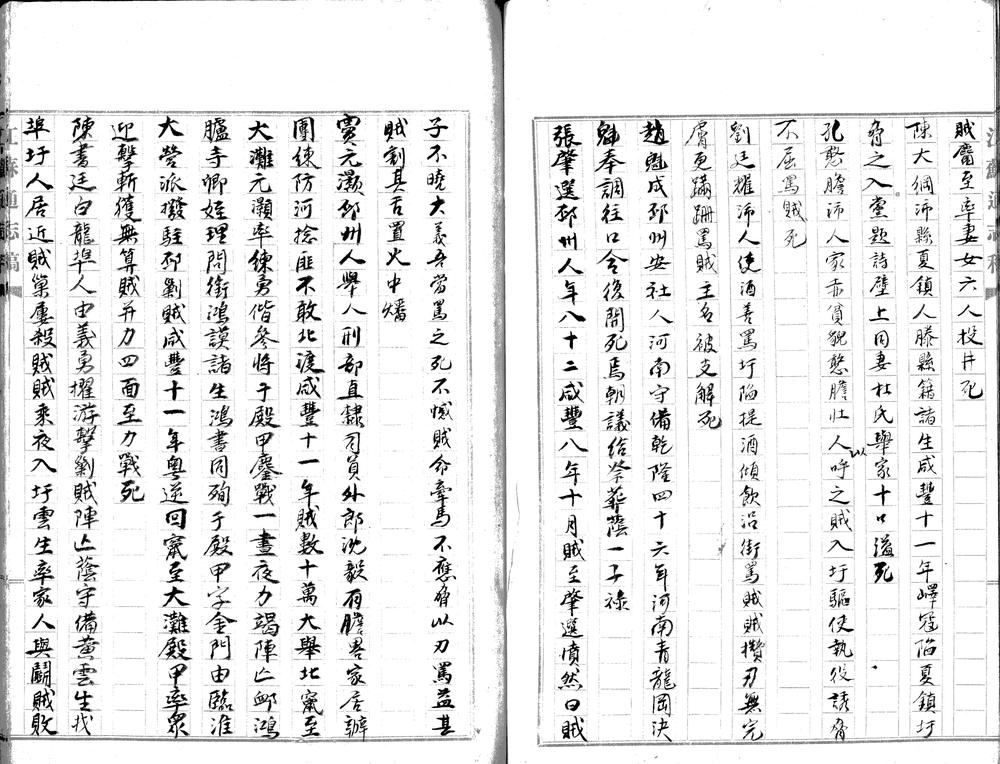 賊屬至率妻女六人投井死
陳大綱沛縣夏鎮人滕縣籍諸生咸豐十一年嶧寇陷夏鎮圩
脅之入堂題詩壁上同妻杜氏舉家十口溢死
孔憨膽沛人家赤貧貌憨膽壯人以呼之賊入圩驅使執役諸脅
不屈罵賊死
劉廷耀沛人使酒善罵圩陷提酒傾飲沿街罵賊賊攢刃無完
膚更蹣跚罵賊主名被支解死
趙魁成邳州安社人河南守備乾隆四十六年河南青龍岡決
魁奉調往口令後閤死焉朝議給祭葬蔭一子祿
張肇選邳州人年八十二咸豐八年十月賊至肇選憤然曰賊
子不曉大義吾當罵之死不憾賊命牽馬不應脅以刃罵益甚
賊割其舌置火中燔
竇元灝邳州人舉人刑部直隸司員外郎沈毅有膽畧家居辦
團練防河捻匪不敢北渡咸豐十一年賊數十萬大舉北竄至
大灘元灝率練勇偕參將于殿甲鏖戰一晝夜力竭陣亾邺鴻
臚寺卿姪理問銜鴻謨諸生鴻書同殉于殿甲字金門由臨淮
大營派撥駐邳剿賊咸豐十一年粵逆回竄至大灘殿甲率眾
迎擊斬獲無算賊并力四面至力戰死
陳書廷白龍埠人由義勇擢游擊剿賊陣亾蔭守備黃雲生找
埠圩人居近賊巢屢殺賊賊乘夜入圩雲生率家人與鬪賊敗
江蘇通志稿